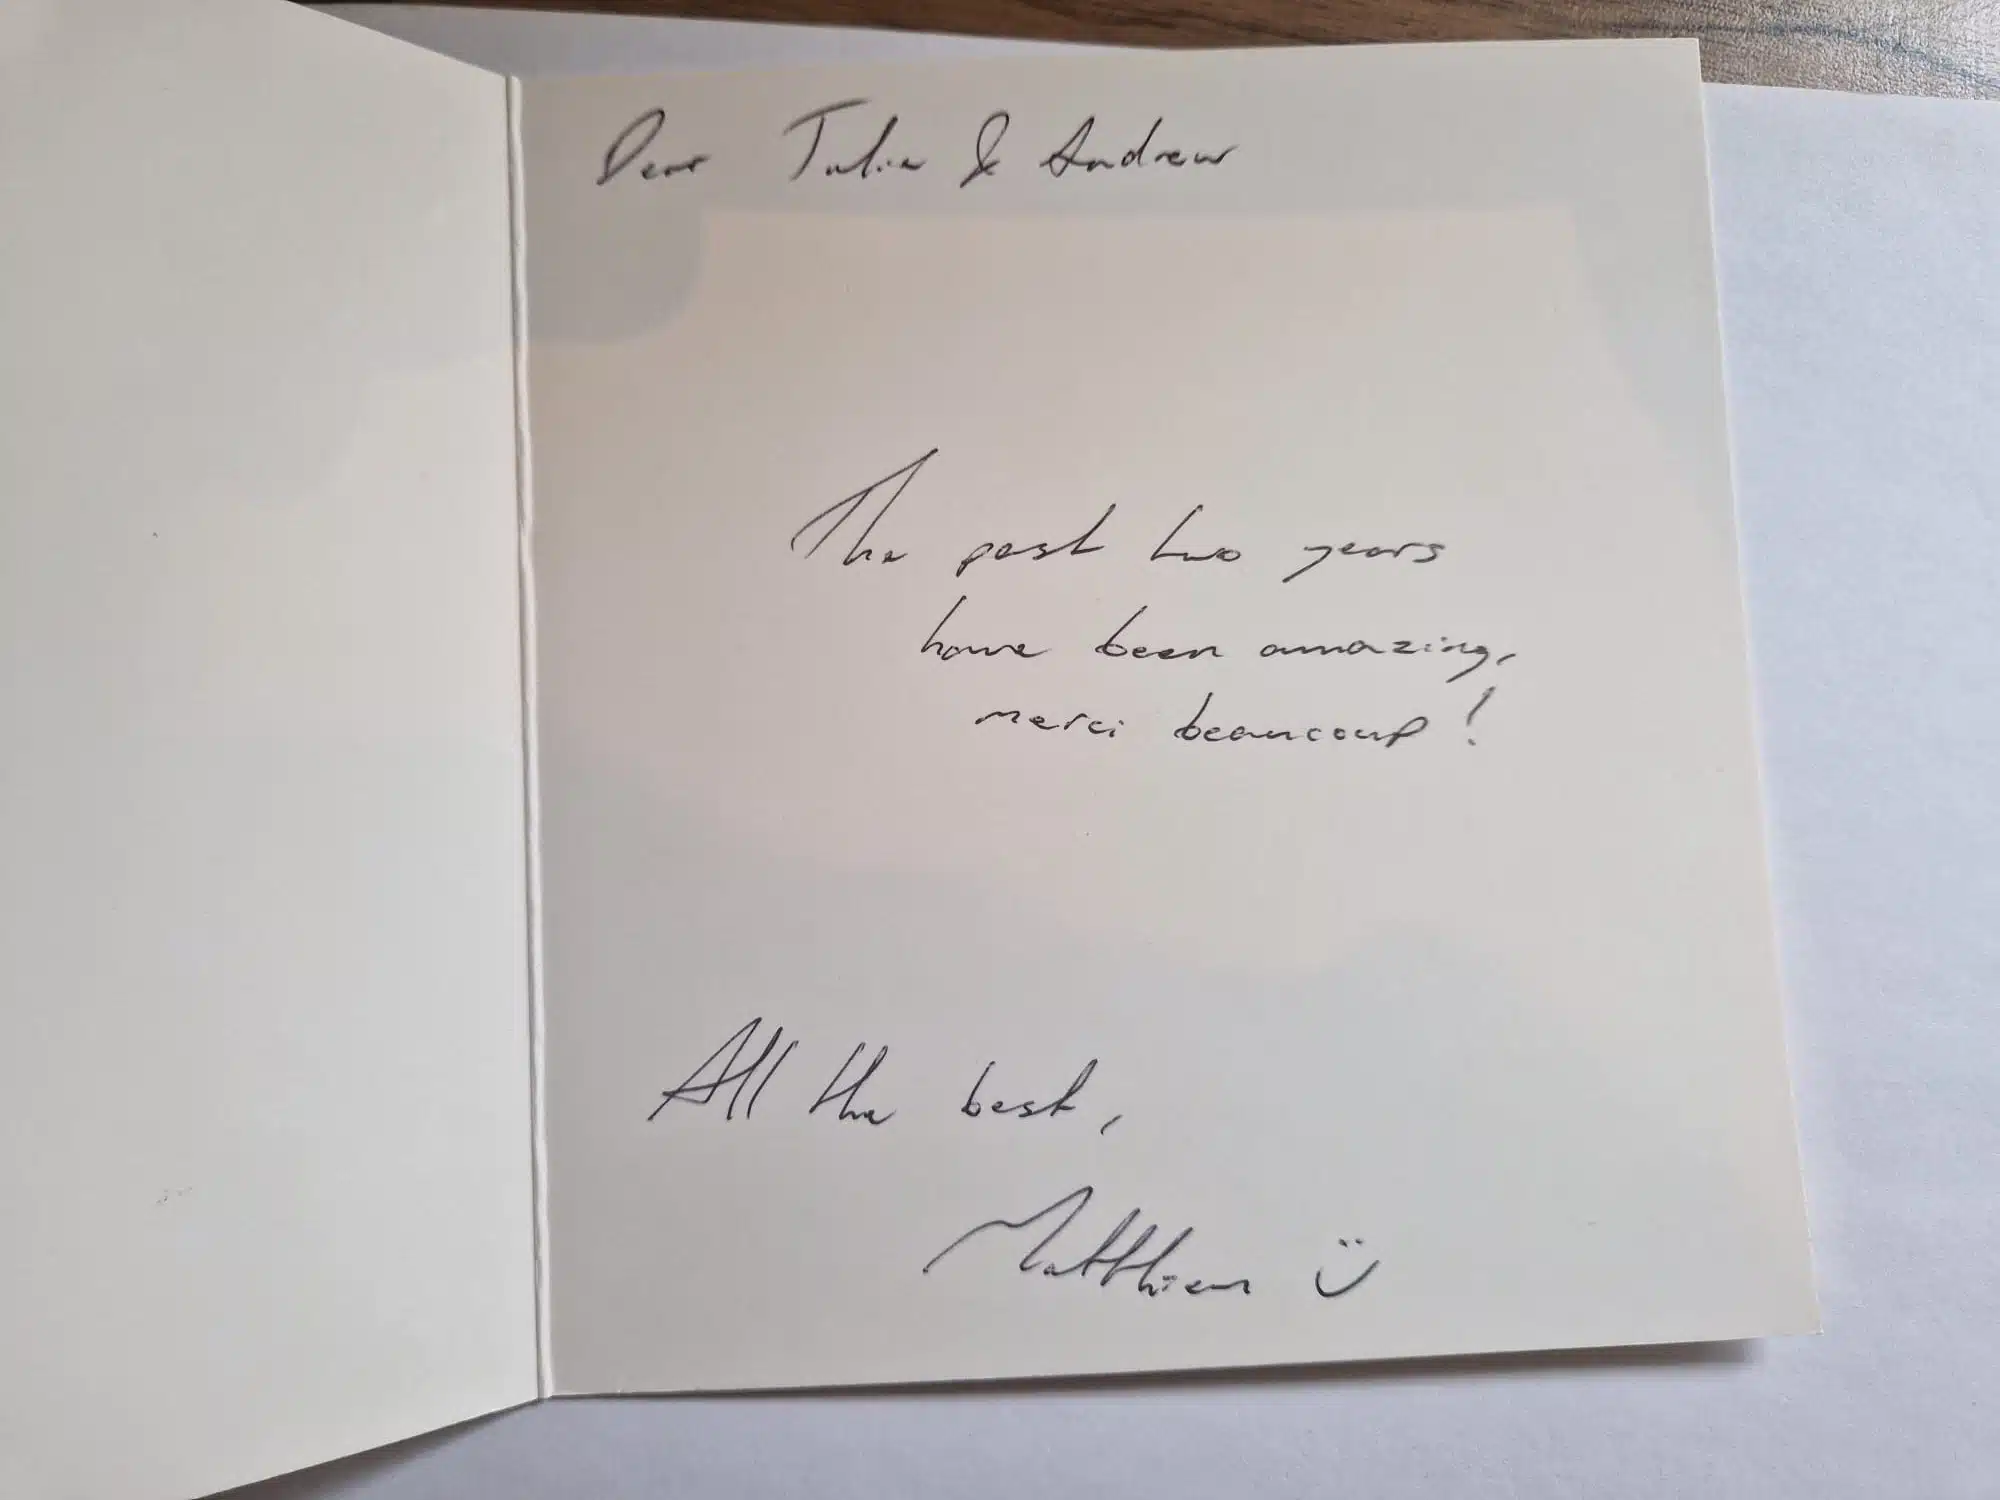 Dear Julia & Andrew
The past two years
have been amazing,
merci beaucoup!
All the best,
Matthieu ü